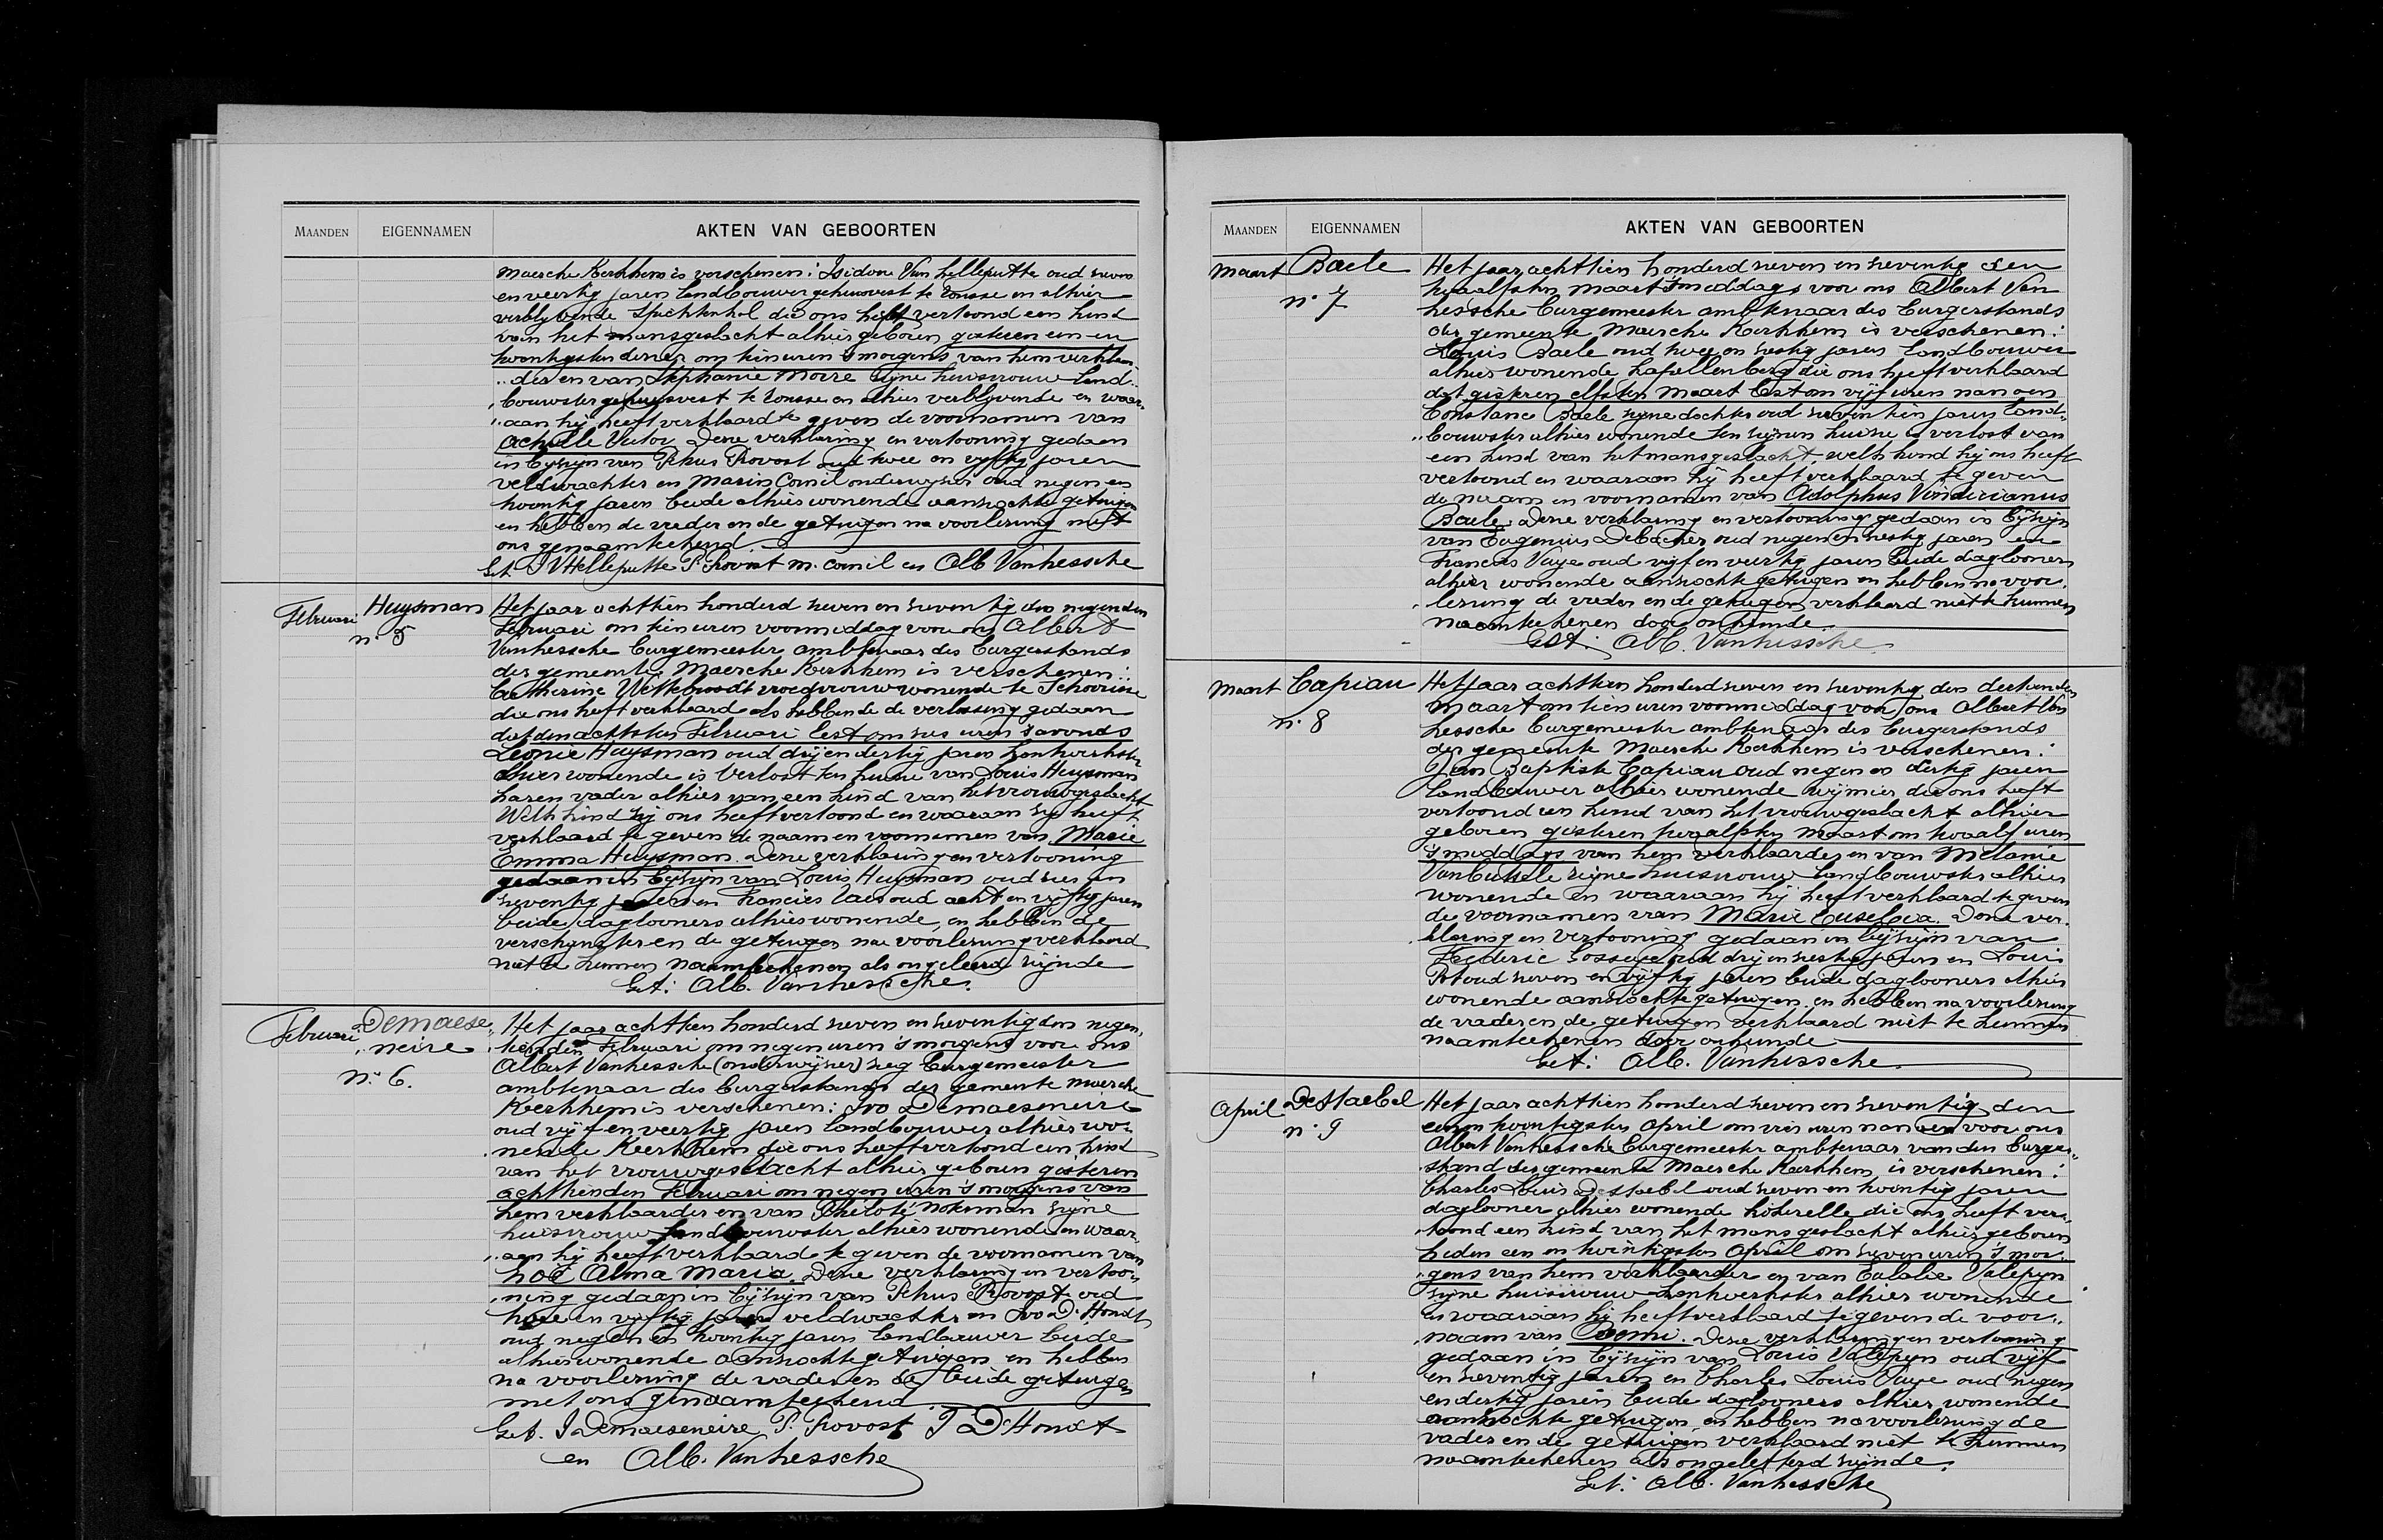 MAANDEN EIGENNAMEN AKTEN VAN GEBOORTEN
Maercke Kerkhem is verschenen: Isidore Van Helleputte oud seven
en veertig jaren landbouwer gehuisvest te Ronsse en alhier
verblyvende die ons heeft vertoond een kind
van het mansgeslacht alhier geboren gisteren een en
twintigsten dezer om tien uren 's morgens van hem verklaar-
der en van Stephanie Moire zijne huisvrouw land-
bouwster gehuisvest te Ronsse en alhier verblyvende en waar-
aan hij heeft verklaard te geven de voornamen van
Achille Victor Deze verklaring en vertooning gedaan
in bijzijn van Petrus Provost oud twee en vyftig jaren
veldwachter en Marin Cornil onderwyser oud negen en
twintig jaren beide alhier wonende aanzochte getuigen
en hebben de vader en de getuigen na voorlezing met
ons genaamteekend.
Get. I VHelleputte P. Provost M. Cornil en Alb Vanhessche
Februari Huysman Het jaar achttien honderd seven en seventig den negenden
n.º 5 Februari om tien uren voormiddag voor ons Albert
Vanhessche burgemeester ambtenaar des burgerstands
der gemeente Maercke Kerkhem is verschenen:
Catherine vroedvrouw wonende te Schoorisse
die ons heeft verklaard als hebbende de verlossing gedaan
dat den achtsten Februari lest om ses uren 's avonds
Leonie Huysman oud drij en dertig jaren
alhier wonende is verlost ten huize van Louis Huysman
haren vader alhier van een kind van het vrouwgeslacht
Welk kind zij ons heeft vertoond en waaraan zij heeft
verklaard te geven de naam en voornamen van Marie
Emma Huysman. Deze verklaring en vertooning
gedaan in bijzijn van Louis Huysman oud ses en
seventig jaren en Francies oud acht en vijftig jaren
beide daglooners alhier wonende, en hebben de
verschynster en de getuigen na voorlezing verklaard
niet te kunnen naamteekenen als ongeleerd zijnde
Get: Alb. Vanhessche.
Februari Demaese- Het jaar achttien honderd seven en seventig den negen-
neire tienden Februari om negen uren 's morgens voor ons
n.º 6. Albert Vanhessche (onderwijzer) zeg burgemeester
ambtenaar des burgerstands der gemeente Maercke
Kerkhem is verschenen: Ivo Demaeseneire
oud vijf en veertig jaren landbouwer alhier wo-
nende Kerkhem die ons heeft vertoond een kind
van het vrouwgeslacht alhier geboren gisteren
achttienden Februari om negen uren 's morgens van
hem verklaarder en van Philoté Noterman zijne
huisvrouw landbouwster alhier wonende en waar-
aan hij heeft verklaard te geven de voornamen van
Zoé Alma Maria. Deze verklaring en vertoo-
ning gedaan in bijzijn van Petrus Provost oud
twee en vijftig jaren veldwachter en Ivo D'Hondt
oud negen en twintig jaren landbouwer beide
alhier wonende aanzochte getuigen en hebben
na voorlezing de vader en de beide getuigen
met ons genaamteekend
Get. I Demaeseneire P. Provost I D'Hondt
en Alb. Vanhessche
MAANDEN EIGENNAMEN AKTEN VAN GEBOORTEN
Maart Baele Het jaar achttien honderd seven en seventig den
n.º 7 twaalfsten Maart 's middags voor ons Albert Van
hessche burgemeester ambtenaar des burgerstands
der gemeente Maercke Kerkhem is verschenen:
Louis Baele oud twee en sestig jaren landbouwer
alhier wonende Kapellenberg die ons heeft verklaard
dat gisteren elfsten Maart lest om vijf uren namoen
Constance Baele zijne dochter oud seven tien jaren land-
bouwster alhier wonende ten zijnen huize is verlost van
een kind van het mansgeslacht, welk kind hij ons heeft
vertoond en waaraan hij heeft verklaard te geven
de naam en voornamen van Adolphus Vindicianus
Baele. Deze verklaring en vertooning gedaan in bijzijn
van Eugenius Debacker oud negen en sestig jaren en
Francies Vaye oud vijf en veertig jaren beide dagloones
alhier wonende aanzochte getuigen en hebben na voor-
lezing de vader en de getuigen verklaard niet te kunnen
naamteekenen door onkunde
Get. Alb. Vanhessche
Maart Capiau Het jaar achttien honderd seven en seventig den dertienden
n.º 8 Maart om tien uren voormiddag voor ons Albert Van
hessche burgemeester ambtenaar des burgerstands
der gemeente Maercke Kerkhem is verschenen:
Jan Baptiste Capiau oud negen en dertig jaren
landbouwer alhier wonende die ons heeft
vertoond een kind van het vrouwgeslacht alhier
geboren gisteren twaalfsten Maart om twaalf uren
's middags van hem verklaarder en van Melanie
zijne huisvrouw landbouwster alhier
wonende en waaraan hij heeft verklaard te geven
de voornamen van Marie Eusebia. Deze ver-
klaring en vertooning gedaan in bijzijn van
Frederic oud drij en sestig jaren en Louis
oud seven en vijftig jaren beide dagloones alhier
wonende aanzochte getuigen en hebben na voorlezing
de vader en de getuigen verklaard niet te kunnen
naamteekenen door onkunde
Get: Alb. Vanhessche
April Destaebel Het jaar achttien honderd seven en seventig den
n.º 9 een en twintigsten April om vier uren namoen voor ons
Albert Vanhessche burgemeester ambtenaar van den burger-
stand der gemeente Maercke Kerkhem, is verschenen:
Charles Louis Destaebel oud seven en twintig jaren
dagloner alhier wonende die ons heeft ver-
toond een kind van het mansgeslacht alhier geboren
heden een en twintigsten April om seven uren 's mor-
gens van hem verklaarder en van Eulalie Valepyn
zijne huisvrouw alhier wonende
en waaraan hij heeft verklaard te geven de voor-
naam van Remi. Deze verklaring en vertooning
gedaan in bijzijn van Louis Valepyn oud vijf
en seventig jaren en Charles Louis Vaye oud negen
en dertig jaren beide dagloones alhier wonende
aanzochte getuigen en hebben na voorlezing de
vader en de getuigen verklaard niet te kunnen
naamteekenen als ongeletterd zijnde.
Get: Alb. Vanhessche